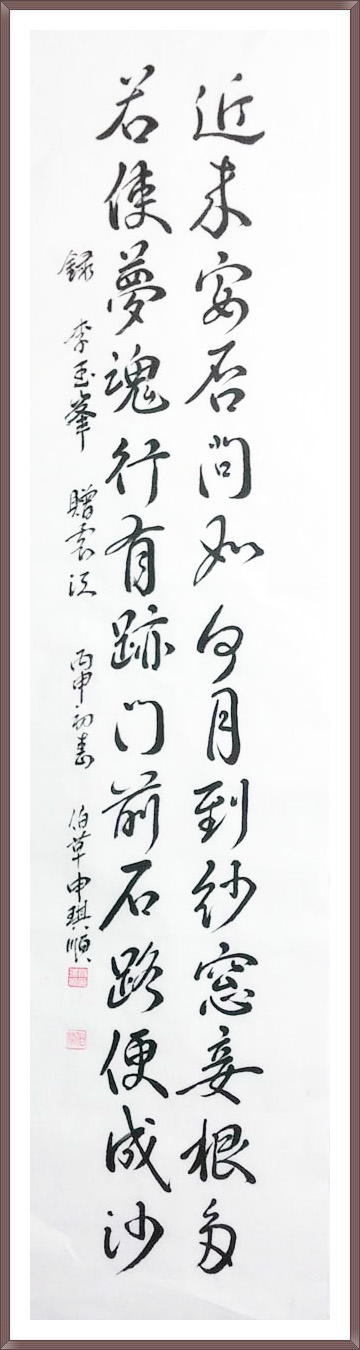 近来安否問如何月到紗窓妾恨多
若使夢魂行有跡門前石路便成沙
録 李玉峯 贈雲江 丙申初春 伯草申琪順